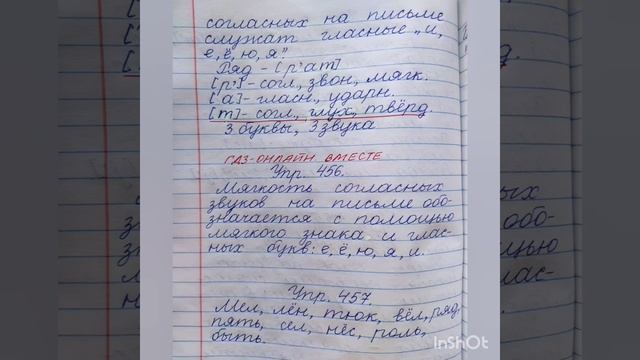 согласных на письме
служат гласные „и,
е, ё, ю, я"
Ряд - [р'ат]
[р'] - согл., звон., мягк.
['а] - гласн., ударн.
[т] - согл., глух., твёрд.
3 буквы, 3 звука
ГДЗ-ОНЛАЙН ВМЕСТЕ
Упр. 456.
Мягкость согласных
звуков на письме обо-
значается с помощью
мягкого знака и глас-
ных букв: е, ё, ю, я, и.
Упр. 457.
Мел, лён, тюк, вёл, ряд,
пять, сел, нёс, роль,
быть.
InShOt